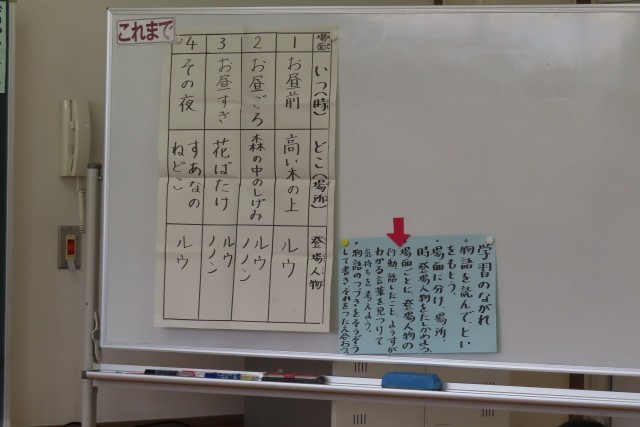 これまで
場面
いつ(時)
どこ(場所)
登場人物
1
お昼前
高い木の上
ルウ
2
お昼ごろ
森の中のしげみ
ルウ
ノノン
3
お昼すぎ
花ばたけ
ルウ
ノノン
4
その夜
すあなの
ねどこ
ルウ
学習のながれ
・物語を読んで、とい
をもとう。
・場面に分け、場所、
時、登場人物をたしかめよう。
・場面ごとに、登場人物の
行動、話したこと、ようすが
わかる言葉を見つけて
気持ちを考えよう。
・物語のつづきをそうぞう
して書き、それをつたえ合おう